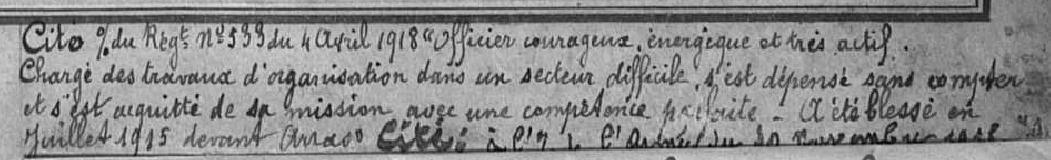 Cité % du Régt. No 533 du 4 Avril 1918 "Officier courageux, énergèque et très actif.
Chargé des travaux d'organisation dans un secteur difficile, s'est dépensé sans compter
et s'est acquitté de sa mission avec une compétence parfaite - A été blessé en
Juillet 1915 devant Arras" Cité: à l'